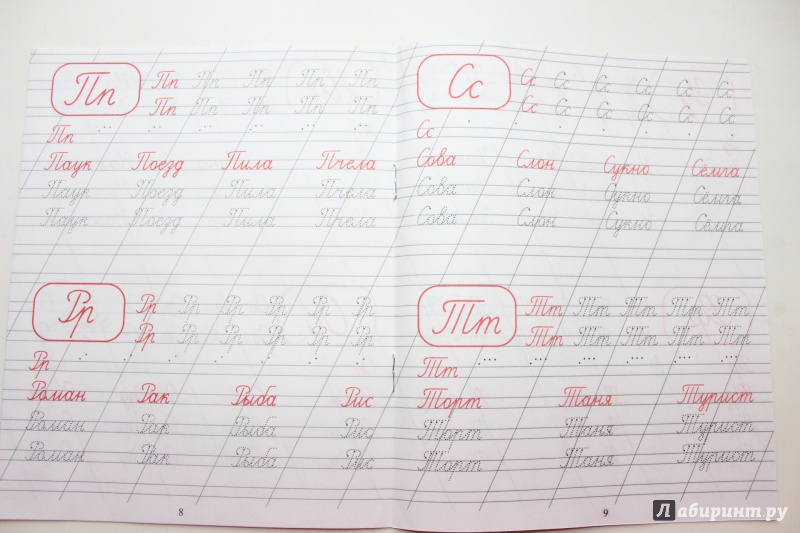 Пп Пп Пп Пп Пп Пп
Пп Пп Пп Пп Пп
Пп
Паук Поезд Пила Пчела
Паук Поезд Пила Пчела
Паук Поезд Пила Пчела
Рр Рр Рр Рр Рр Рр Рр
Рр Рр Рр Рр Рр Рр
Рр
Роман Рак Рыба Рис
Роман Рак Рыба Рис
Роман Рак Рыба Рис
8
Сс Сс Сс Сс Сс Сс Сс
Сс Сс Сс Сс Сс Сс
Сс
Сова Слон Сукно Сёмга
Сова Слон Сукно Сёмга
Сова Слон Сукно Сёмга
Тт Тт Тт Тт Тт Тт
Тт Тт Тт Тт Тт
Тт
Торт Таня Турист
Торт Таня Турист
Торт Таня Турист
9
Лабиринт.ру